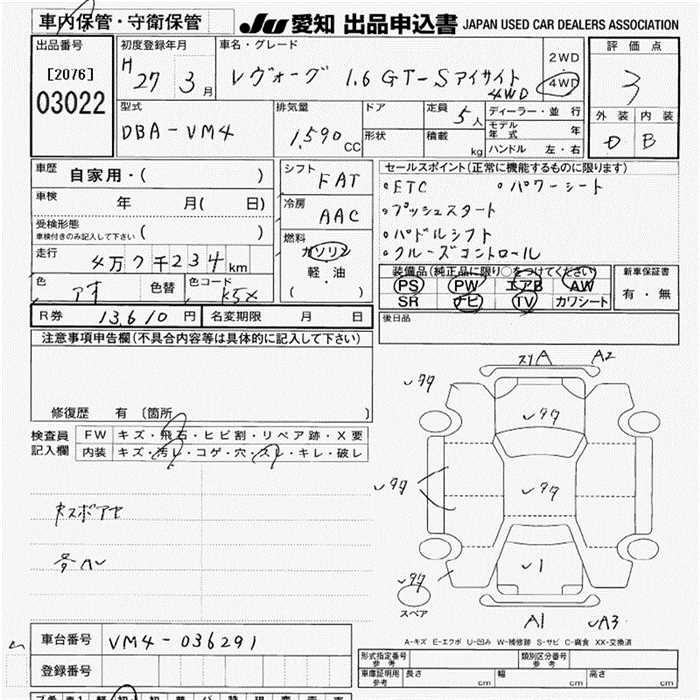 車内保管・守衛保管
JU 愛知 出品申込書 JAPAN USED CAR DEALERS ASSOCIATION
出品番号
[2076]
03022
初度登録年月
H 27 3 月
車名・グレード
レヴォーグ 1.6 GT-S アイサイト
4WD
2WD
4WD
評価点
3
外装 内装
D B
型式
DBA-VM4
排気量
1,590 CC
ドア
形状
定員 5 人
積載 kg
ディーラー・並行
モデル年式 年
ハンドル 左・右
車歴 自家用・( )
車検 年 月( 日)
受検形態
車検付きのみ記入して下さい ( )
走行 4万7千234km
色 アオ 色替
色コード K5X
シフト FAT
冷房 AAC
燃料
ガソリン
軽・油
( )
セールスポイント(正常に機能するものに限ります)
・ETC ・パワーシート
・プッシュスタート
・パドルシフト
・クルーズコントロール
装備品(純正品に限り○をつけてください)
PS PW エアB AW
SR ナビ TV カワシート
新車保証書
有・無
R券 13,610 円 名変期限 月 日
後日品
注意事項申告欄(不具合内容等は具体的に記入して下さい)
修復歴 有 〔箇所 〕
検査員
記入欄
FW キズ・飛石・ヒビ割・リペア跡・X要
内装 キズ・汚レ・コゲ・穴・スレ・キレ・破レ
A A2
A1 A3
スペア
A-キズ E-エクボ U-凹み W-補修跡 S-サビ C-腐食 XX-交換済
車台番号 VM4-036291
登録番号
形式指定番号 参考
類別区分番号 参考
車庫証明用 参考 長さ cm 幅 cm 高さ cm